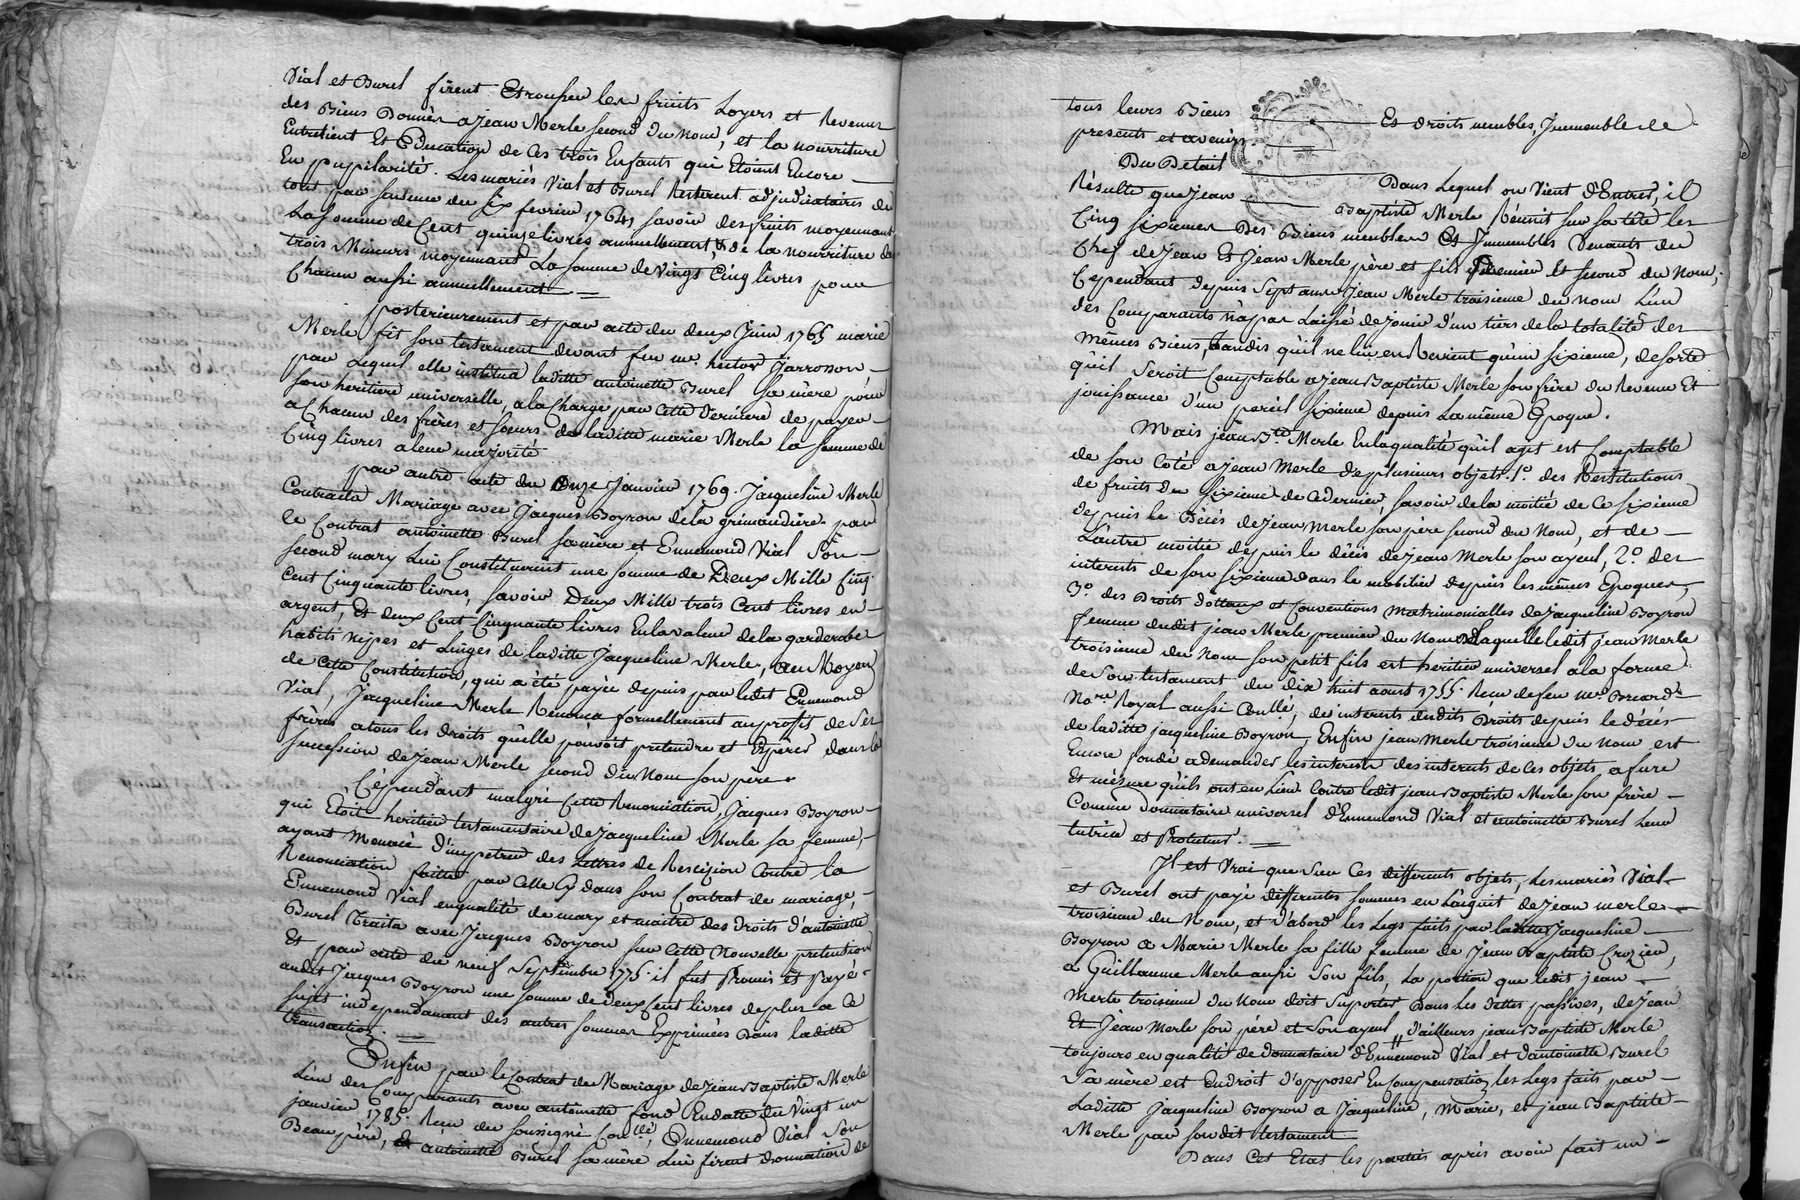 Vial et Burel firent Etrousser les fruits Loyers et Revenus
des Biens Donnés a Jean Merle second du Nom, et la nourriture
Entretient Et Education de Ces trois Enfants qui Etoient Encore
En pupilarité. Les mariés Vial et Burel Resterent adjudicataires du
tout par sentence du six fevrier 1764, savoir des fruits moyennant
La somme de Cent quinze livres annuellement, & de la nourriture des
trois Mineurs moyennant La somme de Vingt Cinq livres pour
Chacun aussi annuellement
posterieurement et par acte du deux Juin 1765 marie
Merle fit son testament devant feu me. hector Jarrosson
par Lequel elle institua laditte antoinette Burel sa mère pour
son heritiere universelle, a la Charge par cette Derniere de payer
a Chacun des frères et sœurs de laditte marie Merle la somme de
Cinq livres a leur majorité
par autre acte du Onze Janvier 1769. Jacqueline Merle
Contracta Mariage avec Jacques Boyron dela grimaudière. par
le Contrat antoinette Burel sa mère et Ennemond Vial Son
second mary Lui Constituerent une somme de Deux Mille Cinq
cent Cinquante livres, savoir Deux Mille trois Cent livres en
argent, Et deux Cent Cinquante livres En la valeur de la garderobe
habits nipes et Linges de laditte Jacqueline Merle, au Moyen
de Cette Constitution, qui a été payée depuis par ledit Ennemond
Vial, Jacqueline Merle Renonca formellement au profit de Ses
frères a tous les droits qu'elle pouvoit pretendre et Esperer dans la
succession de Jean Merle second du Nom son père.
Cependant malgré Cette Renonciation, Jacques Boyron
qui Etoit heritier testamentaire de Jacqueline Merle sa femme,
ayant Menacé d'impetrer des Lettres de Rescizion Contre la
Renonciation faitte par Celle Cy dans son Contrat de mariage,
Ennemond Vial en qualité de mary et maitre des droits d'antoinette
Burel Traita avec Jacques Boyron sur Cette Nouvelle pretention
Et par acte du neuf Septembre 1775. il fut Promis et Payé
audit Jacques Boyron une somme de deux Cent livres de plus a Ce
sujet independamant des autres sommes Exprimées Dans laditte
transaction.
Enfin par le Contrat de Mariage de Jean Baptiste Merle
L'un des Comparants avec antoinette fond En datte du Vingt un
janvier 1785. Recu du soussigné Con.lle, Ennemond Vial Son
Beau père, Et antoinette Burel sa mère Lui firent Donnation de
tous leurs Biens Et droits meubles, Immeubles
presents et avenirs
Du Detail Dans Lequel on Vient d'Entrer, il
Résulte que Jean Baptiste Merle Réunit sur sa tête les
Cinq sixiemes Des Biens meubles Et Immeubles Venants du
Chef de Jean Et Jean Merle père et fils Premier Et second du Nom;
Cependant depuis Sept ans Jean Merle troisieme du nom L'un
des Comparants n'a pas Laissé de Jouir d'un tiers de la totalité des
mêmes Biens, tandis qu'il ne lui en Revient qu'un sixieme, de sorte
qu'il Seroit Comptable a Jean Baptiste Merle son frère du Revenu Et
jouissance d'un pareil sixieme depuis La même Epoque.
Mais jean Bte. Merle En la qualité qu'il agit est Comptable
de son Coté a Jean Merle de plusieurs objets. 1o. des Restitutions
de fruits du sixieme de Ce dernier, savoir de la moitié de Ce sixieme
depuis le Décés de Jean Merle son père second du Nom, et de
L'autre moitié depuis le décés de Jean Merle son ayeul, 2o. des
interets de son sixieme dans le mobilier depuis les mêmes Epoques,
3o. des Droits dottaux et Conventions matrimonialles de Jacqueline Boyron
femme dudit jean Merle premier du Nom de Laquelle ledit jean Merle
troisieme du Nom son petit fils est heritier universel a la forme
de Son testament du dix huit aoust 1755. Recu de feu me. Breard
No.re Royal aussi Con.lle, des interets desdits Droits depuis le décés
de laditte jacqueline Boyron, Enfin jean Merle troisieme du Nom est
Encore fondé a demander les interets des interets de Ces objets a fure
Et mésure qu'ils ont eu Lieu Contre ledit jean Baptiste Merle son frère
Comme donnataire universel d'Ennemond Vial et antoinette Burel Leur
tutrice et Protuteur.
Il est Vrai que sur Ces differents objets, Les mariés Vial
et Burel ont payé differentes sommes en L'aquit de Jean Merle
troisieme du Nom, et d'abord les Legs faits par laditte Jacqueline
Boyron a Marie Merle sa fille femme de Jean Baptiste Crozier,
a Guillaume Merle aussi Son fils, La portion que ledit jean
Merle troisieme du Nom doit Suporter Dans les Dettes passives, de Jean
Et Jean Merle son père et son ayeul, d'ailleurs jean Baptiste Merle
toujours en qualité de donnataire d'Ennemond Vial et d'antoinette Burel
Sa mère est En droit d'opposer En Compensation les Legs faits par
Laditte Jacqueline Boyron a Jacqueline, Marie, et Jean Baptiste
Merle par son dit testament
Dans Cet Etat les parties après avoir fait un